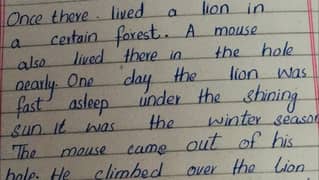 Once there. lived a lion in
a certain forest. A mouse
also lived there in the hole
nearly. One day the lion was
fast asleep under the shining
sun it was the winter season
The mouse came out of his
hole. He climbed over the lion